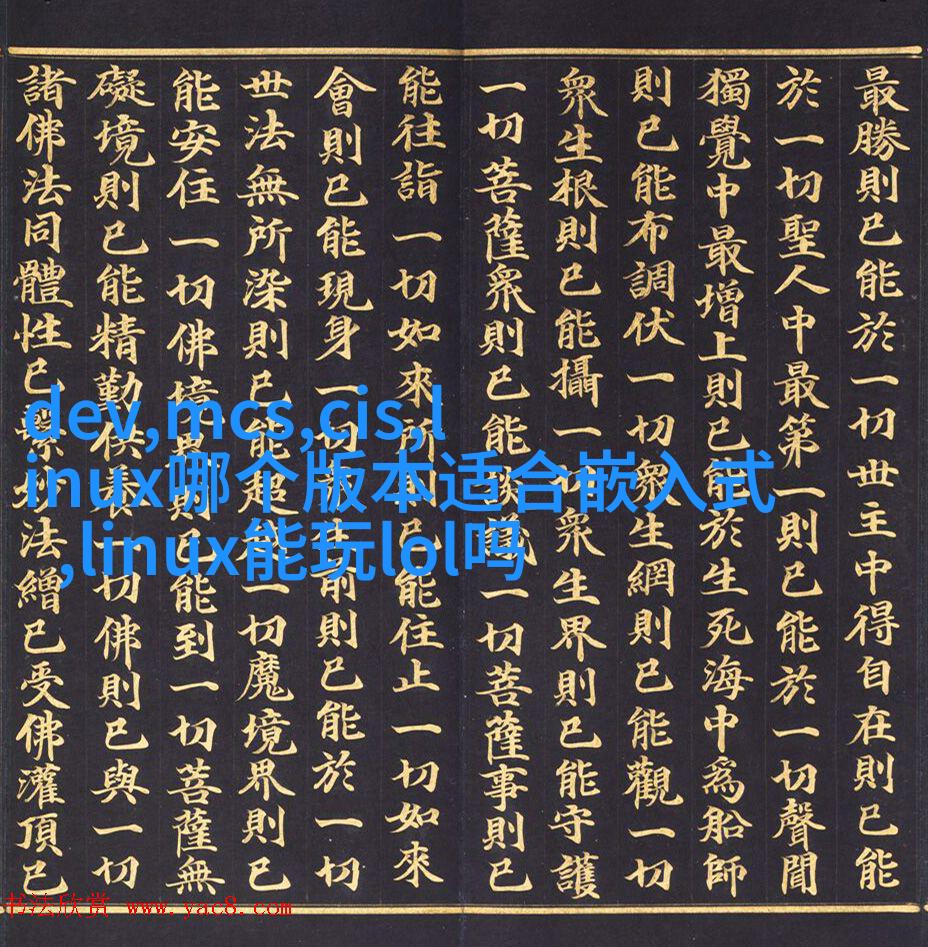 最勝則已能於一切世主中得自在則已能
於一切聖人中最第一則已能於一切聲聞
獨覺中最增上則已能於生死海中爲船師
則已能布調伏一切眾生網則已能觀一切
眾生根則已能攝一切眾生界則已能守護
一切菩薩眾則已能議一切菩薩事則已
能往詣一切如來所則已能住止一切如來
會則已能現身一切眾生前則已能於一切
世法無所染則已能超一切魔境界則已
能安住一切佛境界則已能到一切菩薩無
礙境則已能精勤供養一切佛則已與一切
諸佛法同體性已繫妙法繒已受佛灌頂已
dev,mcs,cis,l
inux哪个版本适合嵌入式
,linux能玩lol吗
书法欣赏 www.yac8.com